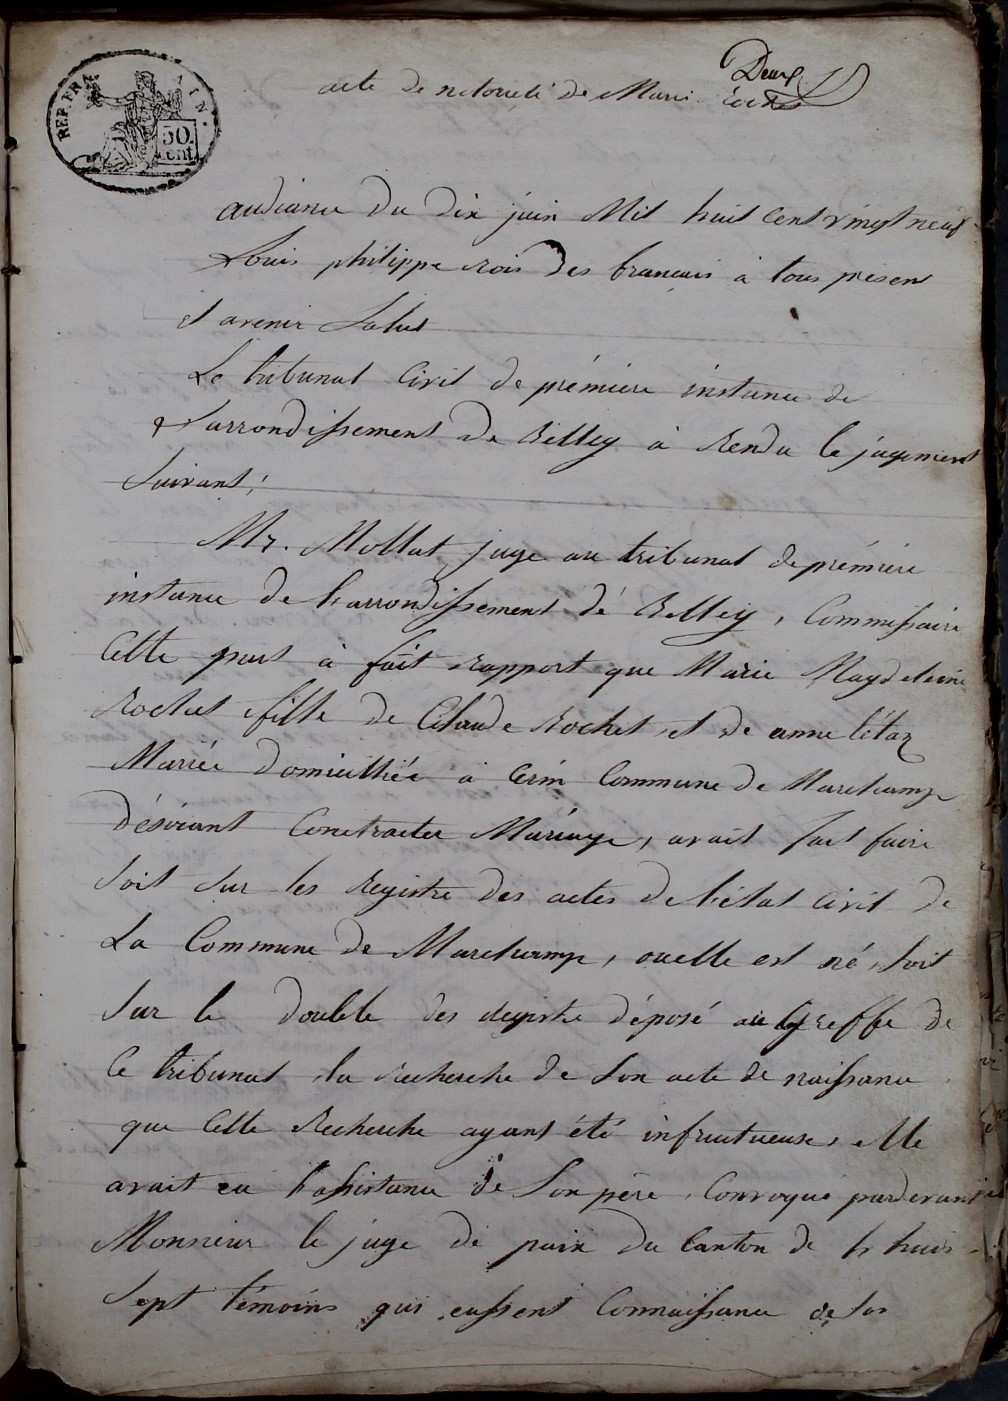 Deux
acte de notorieté de Marie rochet
REP. FRA
TIN.
50
cent
audiance du dix juin Mil huit cent vingt neuf
Louis philippe rois des francais à tous présent
et avenir Salut
Le tribunal Civil de prémiere instance de
L'arrondissement de Belley à Rendu le jugement
Suivant;
Mr. Mollat juge au tribunal de prémiere
instance de L'arrondissement dé Belley, Commissaire
Cette part à fait rapport que Marie Magdeleine
Rochet fille de Claude Rochet, et de anne
Mariée domicilliée à Cerin Commune de Marchamp
désirant Conctracter Mariage, avait fait faire
Soit Sur les Registre des actes de l'état Civil de
La Commune de Marchamp, ouelle est né, Soit
Sur le double des régistre déposé au greffe de
Ce tribunal, la Recherche de Son acte de naissance
que Cette Recherche ayant été infructueuse, elle
avait eu l'assistance de Son père, Convoqué pardevant
Monsieur le juge de paix du Canton de Lhuis
Sept témoins qui eussent Connaissance de Sa